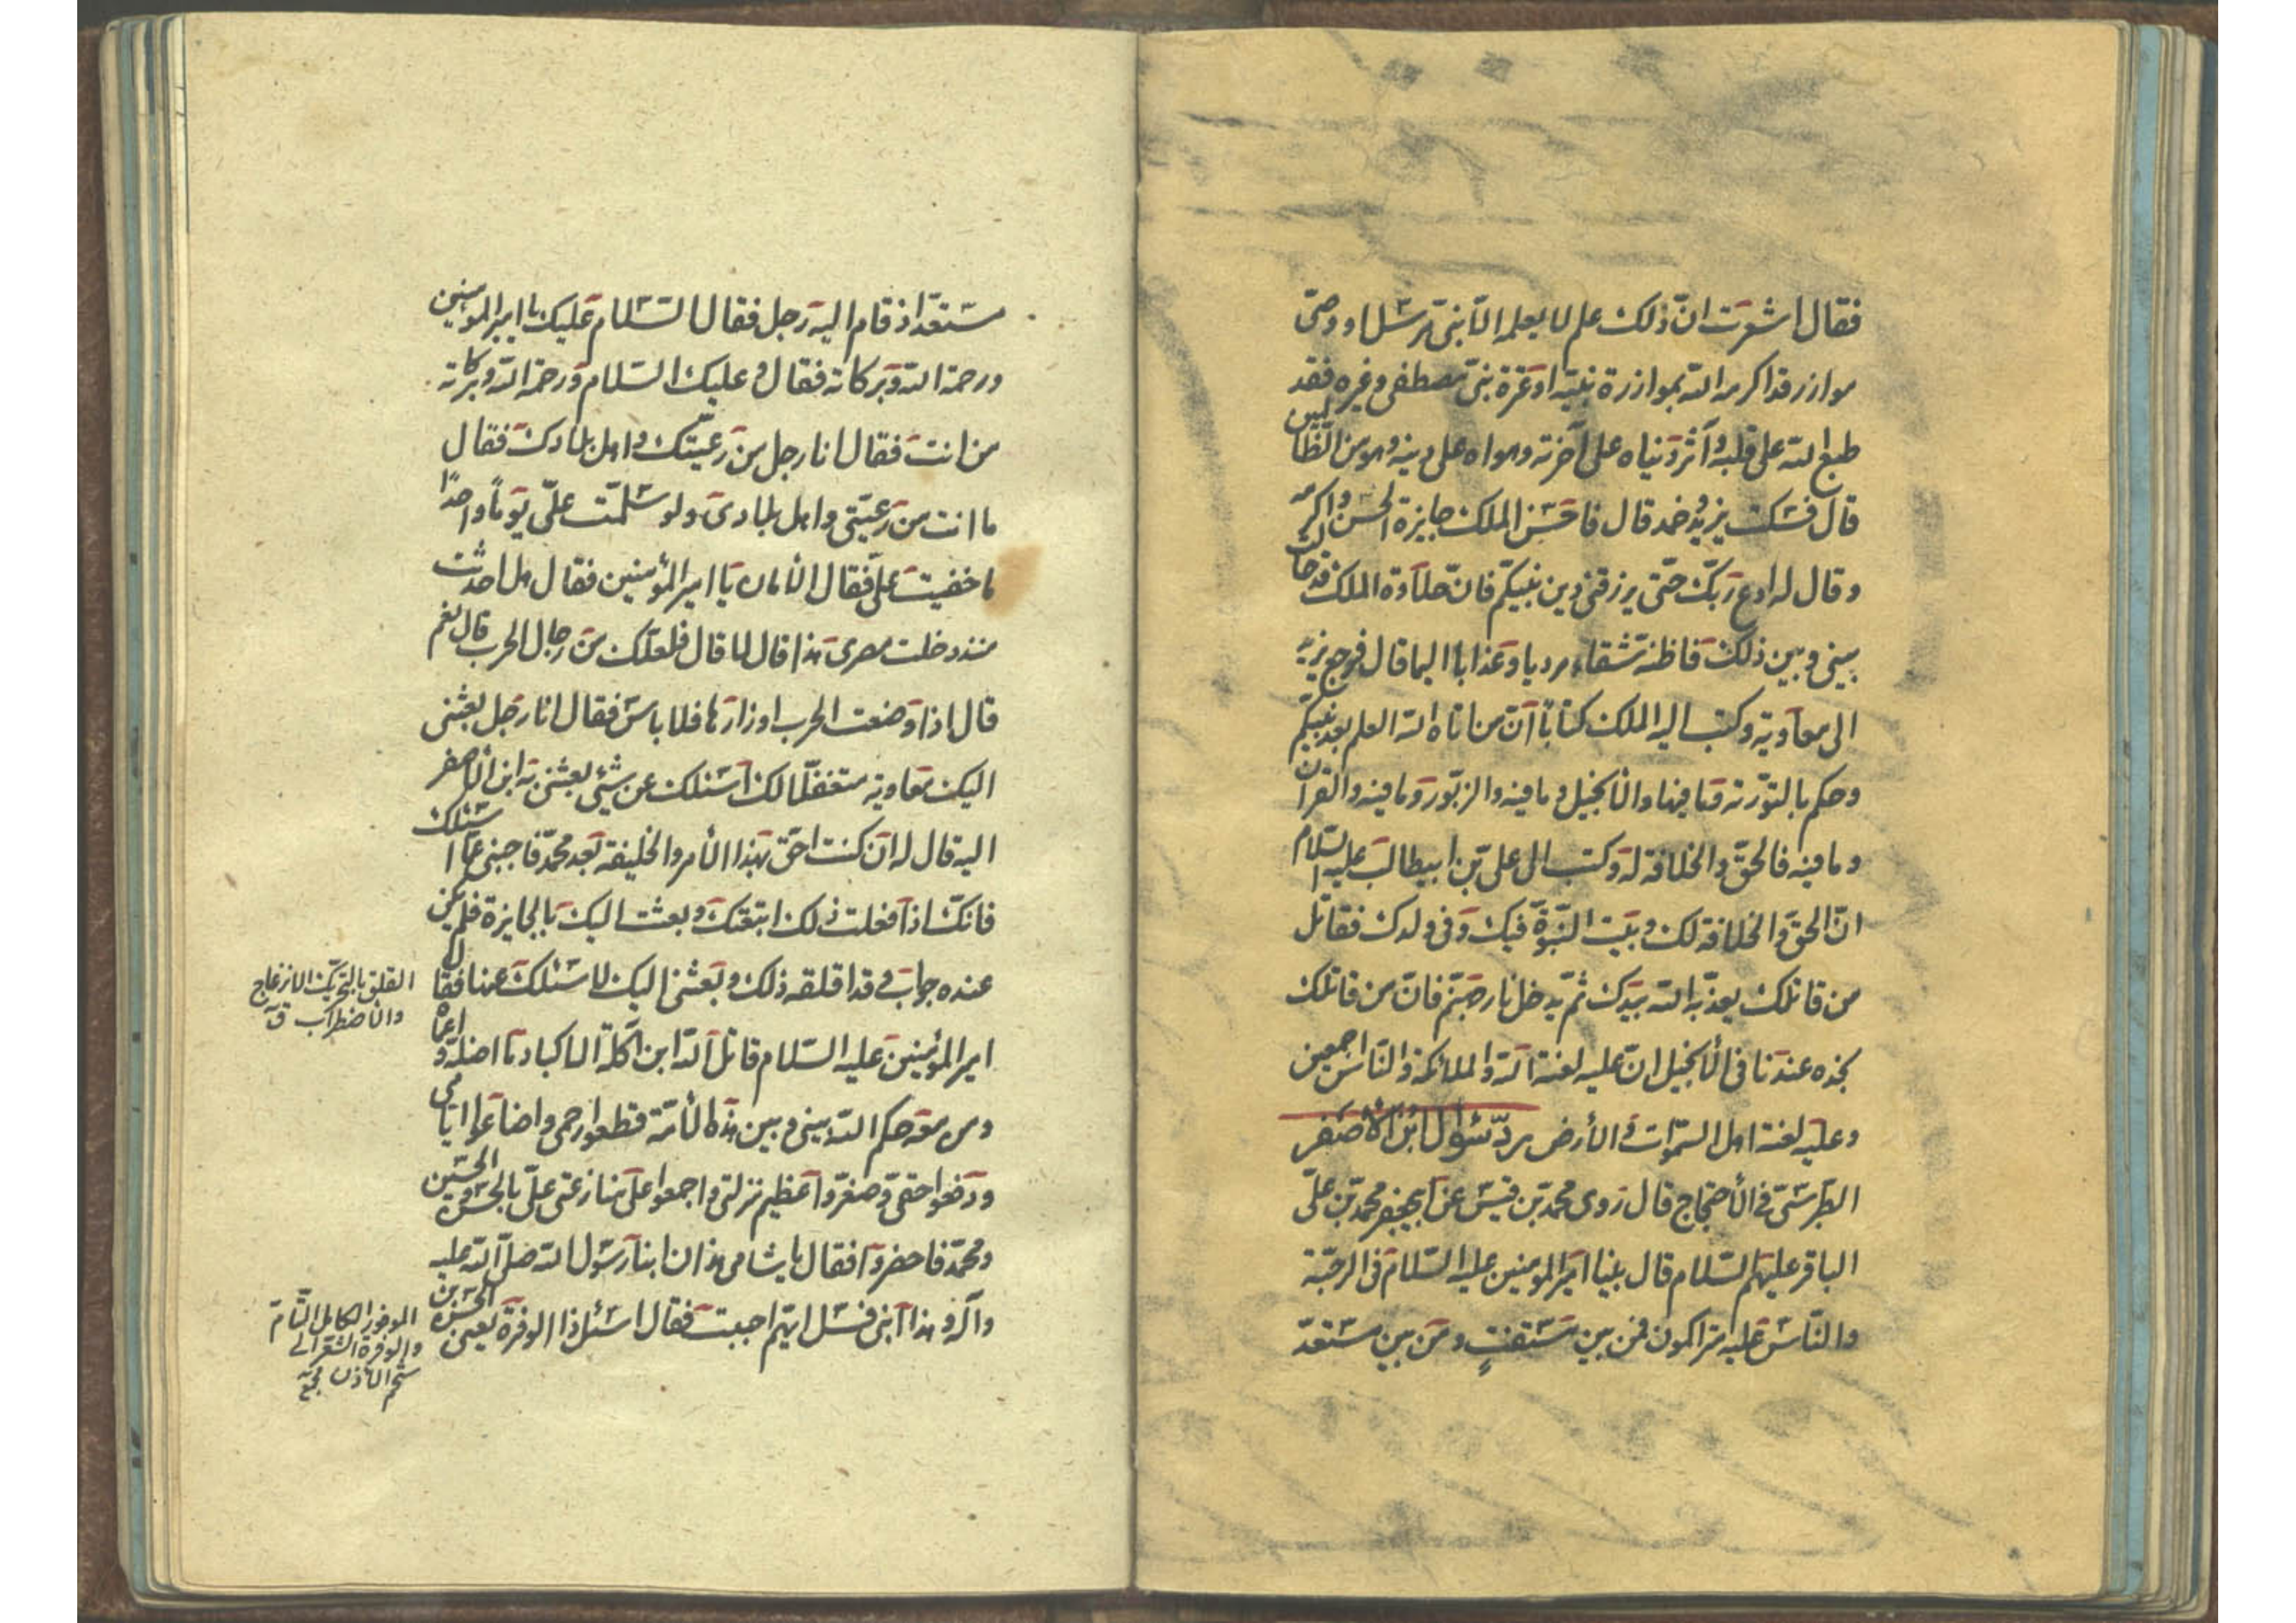 فقال اشعرت انّ ذلك علم لا يعلمه الّا نبىّ مرسل او وصىّ
موازر قد اكرمه اللّه بموازرة نبيّه او عترة نبىّ مصطفى و غيره فقد
طبع اللّه على قلبه و آثر دنياه على آخرته و هواه على دينه و هو من الظّالمين
قال فسكت يزيد و خمد قال فاحسن الملك جايزة الحسن و اكرمه
و قال له ادع ربّك حتّى يرزقنى دين نبيّكم فانّ حلاوة الملك قد حالت
بينى و بين ذلك فاظنّه شقاء مرديا و عذابا اليما قال فرجع يزيد
الى معاوية و كتب اليه الملك كتابا انّ من اتاه اللّه العلم بعد نبيّكم
و حكم بالتّورية و ما فيها و الأنجيل و ما فيه و الزّبور و ما فيه و القرآن
و ما فيه فالحقّ و الخلافة له و كتب الى علىّ بن ابيطالب عليه السّلام
انّ الحقّ و الخلافة لك و بيت النّبوّة فيك و فى ولدك فقاتل
من قاتلك يعذّبه اللّه بيدك ثمّ يدخل نار جهنّم فانّ من قاتلك
نجده عندنا فى الأنجيل انّ عليه لعنة اللّه و الملائكة و النّاس اجمعين
و عليه لعنة اهل السّموات و الأرض ردّ سؤال ابن الأصفر
الطّبرسىّ فى الأحتجاج قال روى محمّد بن قيس عن ابيجعفر محمّد بن علىّ
الباقر عليهم السّلام قال بينا امير المؤمنين عليه السّلام فى الرّحبة
و النّاس عليه متراكمون فمن بين مستفتٍ و من بين مستعدّ
مستعدّا اذ قام اليه رجل فقال السّلام عليك يا امير المؤمنين
و رحمة اللّه و بركاته فقال و عليك السّلام و رحمة اللّه و بركاته
من انت فقال انا رجل من رعيّتك و اهل بلادك فقال
ما انت من رعيّتى و اهل بلادى و لو سلّمت علىّ يوماً واحدًا
ما خفيت علىّ فقال الأمان يا امير المؤمنين فقال هل احدثت
منذ دخلت مصرى هذا قال لا قال فلعلّك من رجال الحرب قال نعم
قال اذا وضعت الحرب اوزارها فلا باس فقال انا رجل بعثنى
اليك معاوية متغفّلا لك اسئلك عن شيئى بعثنى به ابن الأصفر
اليه قال له ان كنت احقّ بهذا الأمر و الخليفة بعد محمّد فاجبنى عمّا اسئلك
فانّك اذا فعلت ذلك اتبعتك و بعثت اليك بالجايزة فلم يكن
عنده جواب و قد اقلقه ذلك و بعثنى اليك لاسئلك عنها فقال
امير المؤمنين عليه السّلام قاتل اللّه ابن اكلة الاكباد ما اضلّه و اعماه
و من معه حكم اللّه بينى و بين هذه الأمّة قطعوا رحمى و اضاعوا ايّامى
و دفعوا حقّى و صغّروا عظيم منزلتى و اجمعوا على منازعتى علىّ بالحسن و الحسين
و محمّد فاحضروا فقال يا شامى هذان ابنا رسول اللّه صلّى اللّه عليه
و آله و هذا ابنى فسئل ايّهم احببت فقال اسئل ذا الوفرة يعنى الحسن بن
القلق بالتّحريك الانزعاج
و الأضطراب ق
الموفور الكامل التّامّ
و الوفرة الشّعر الى
شحم الأذن مجمع